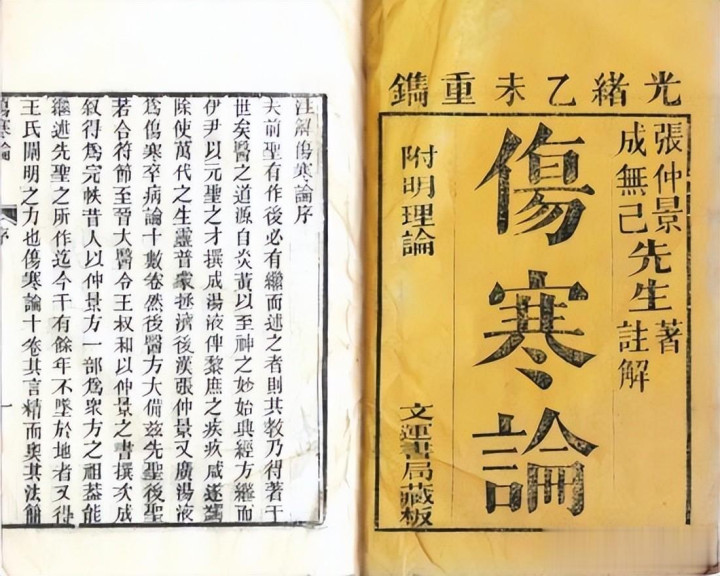 光緒乙未重鐫
張仲景先生著
成無己先生註解
傷寒論
附明理論
文運書局藏板
注解傷寒論序
夫前聖有作後必有繼而述之者則其教乃得著于
世矣醫之道源自炎黃以至神之妙始興經方繼而
伊尹以元聖之才撰成湯液俾黎庶之疾疚咸遂蠲
除使萬代之生靈普蒙拯濟後漢張仲景又廣湯液
為傷寒卒病論十數卷然後醫方大備茲先聖後聖
若合符節至晉太醫令王叔和以仲景之書撰次成
敘得為完帙昔人以仲景方一部為衆方之祖蓋能
繼述先聖之所作迄今千有餘年不墜於地者又得
王氏闡明之力也傷寒論十卷其言精而奧其法簡
傷寒論
序
一